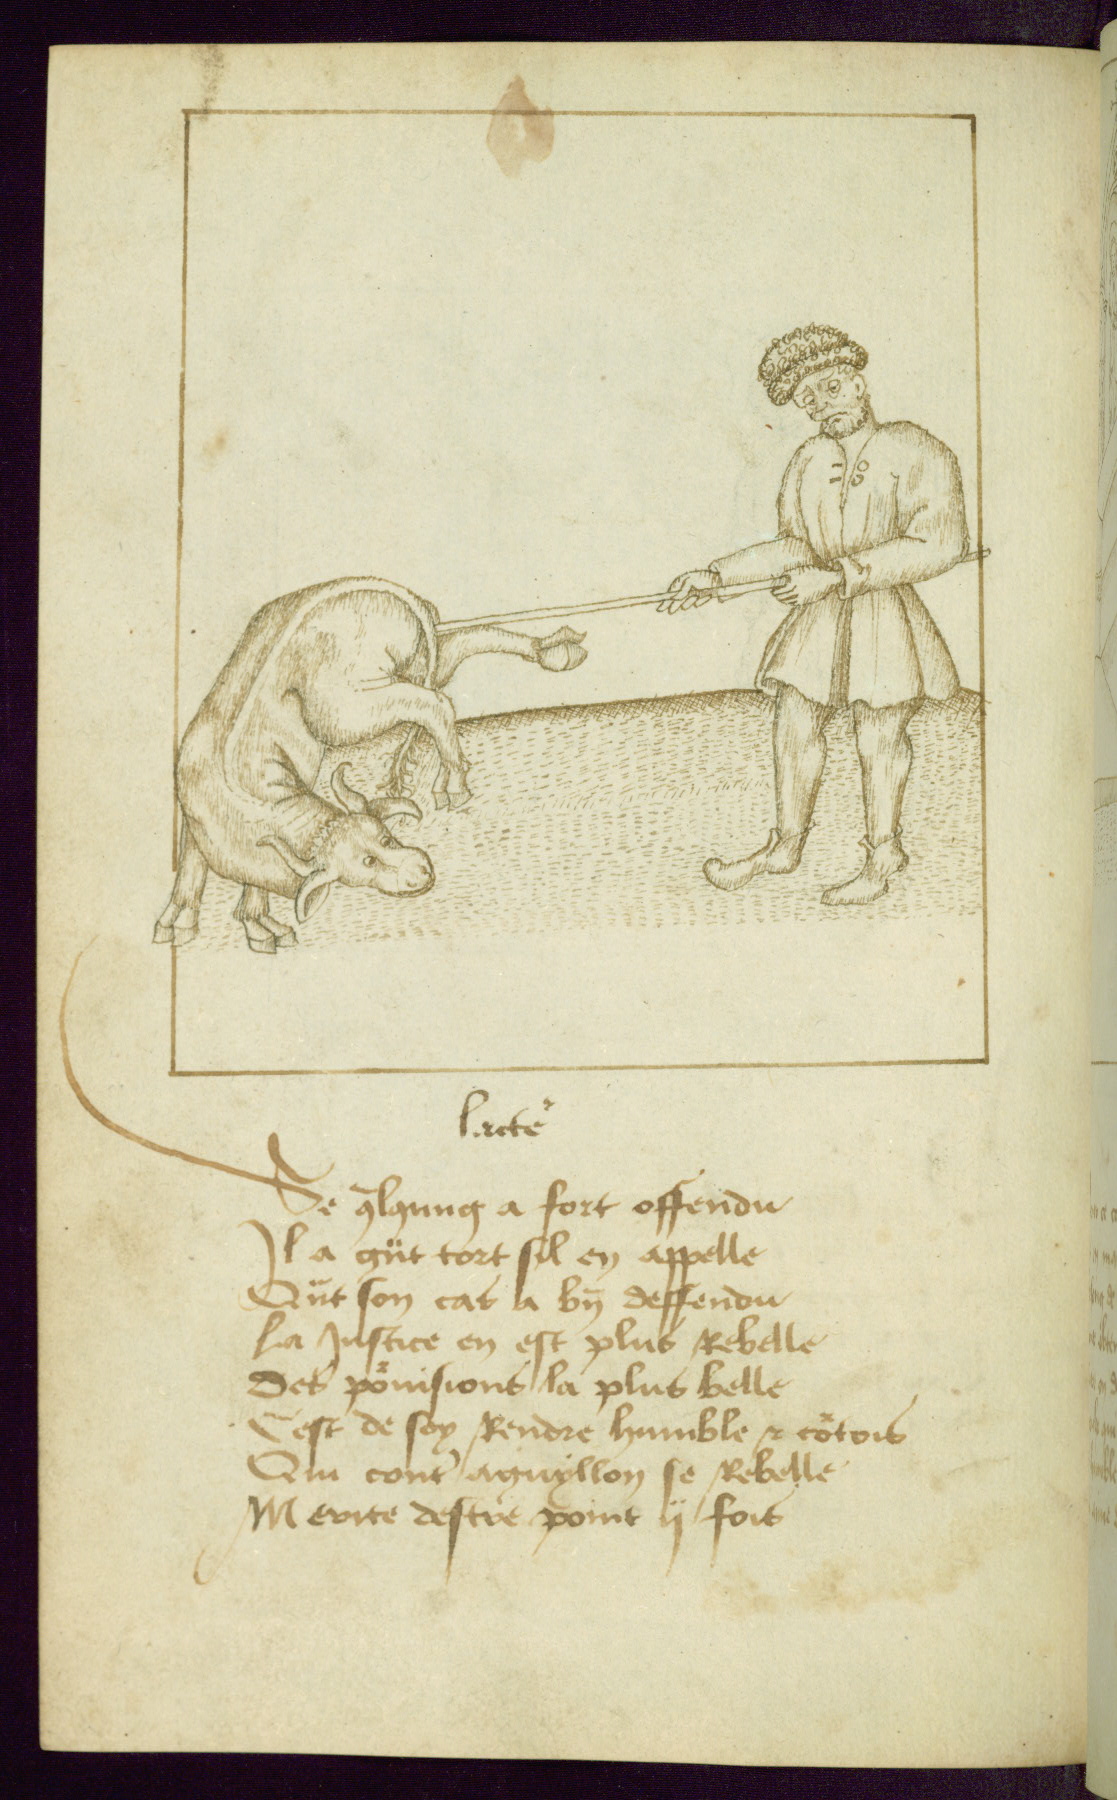 lacte᷑
Se q̃lqung a fort offendu
Il a g̃ut tort sil en appelle
Qũt son cas a biẽ deffendu
La Justice en est plus Rebelle
Des põnisions la plus belle
Cest de soy Rendre humble ⁊ cõtois
Qui cont̾ aguyllon se Rebelle
Merite destre point ij fois